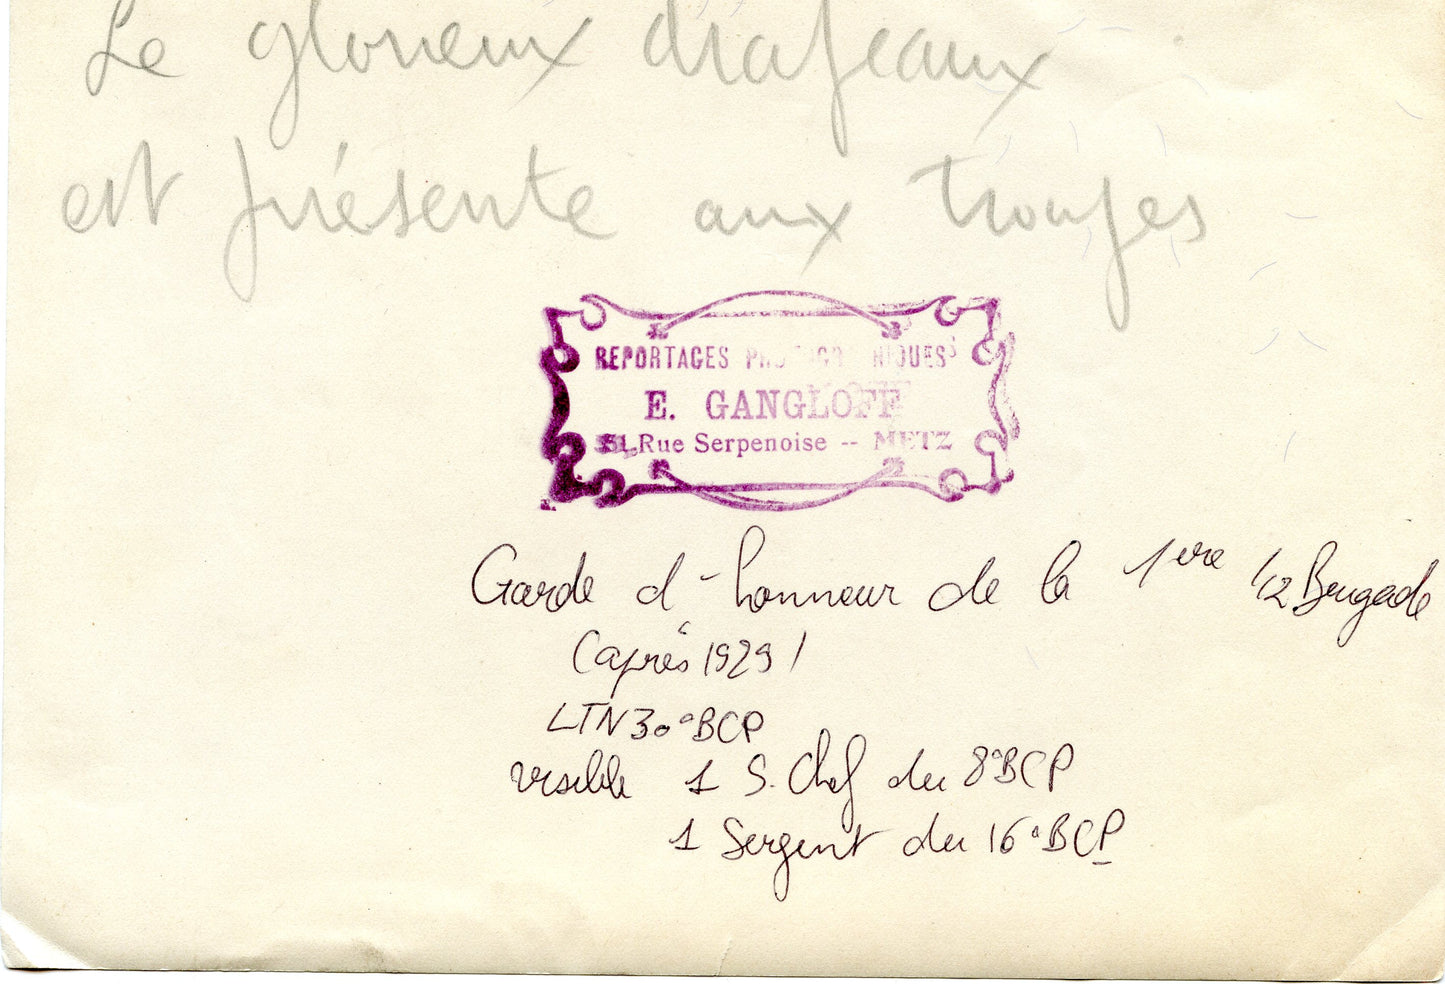 Le glorieux drapeaux
est présente aux troupes
REPORTAGES PHOTOGRAPHIQUES
E. GANGLOFF
51, Rue Serpenoise -- METZ
Garde d'honneur de la 1ere 1/2 Brigade
(après 1929)
LTN 30°BCP
visible 1 S. Chef du 8°BCP
1 Sergent du 16°BCP